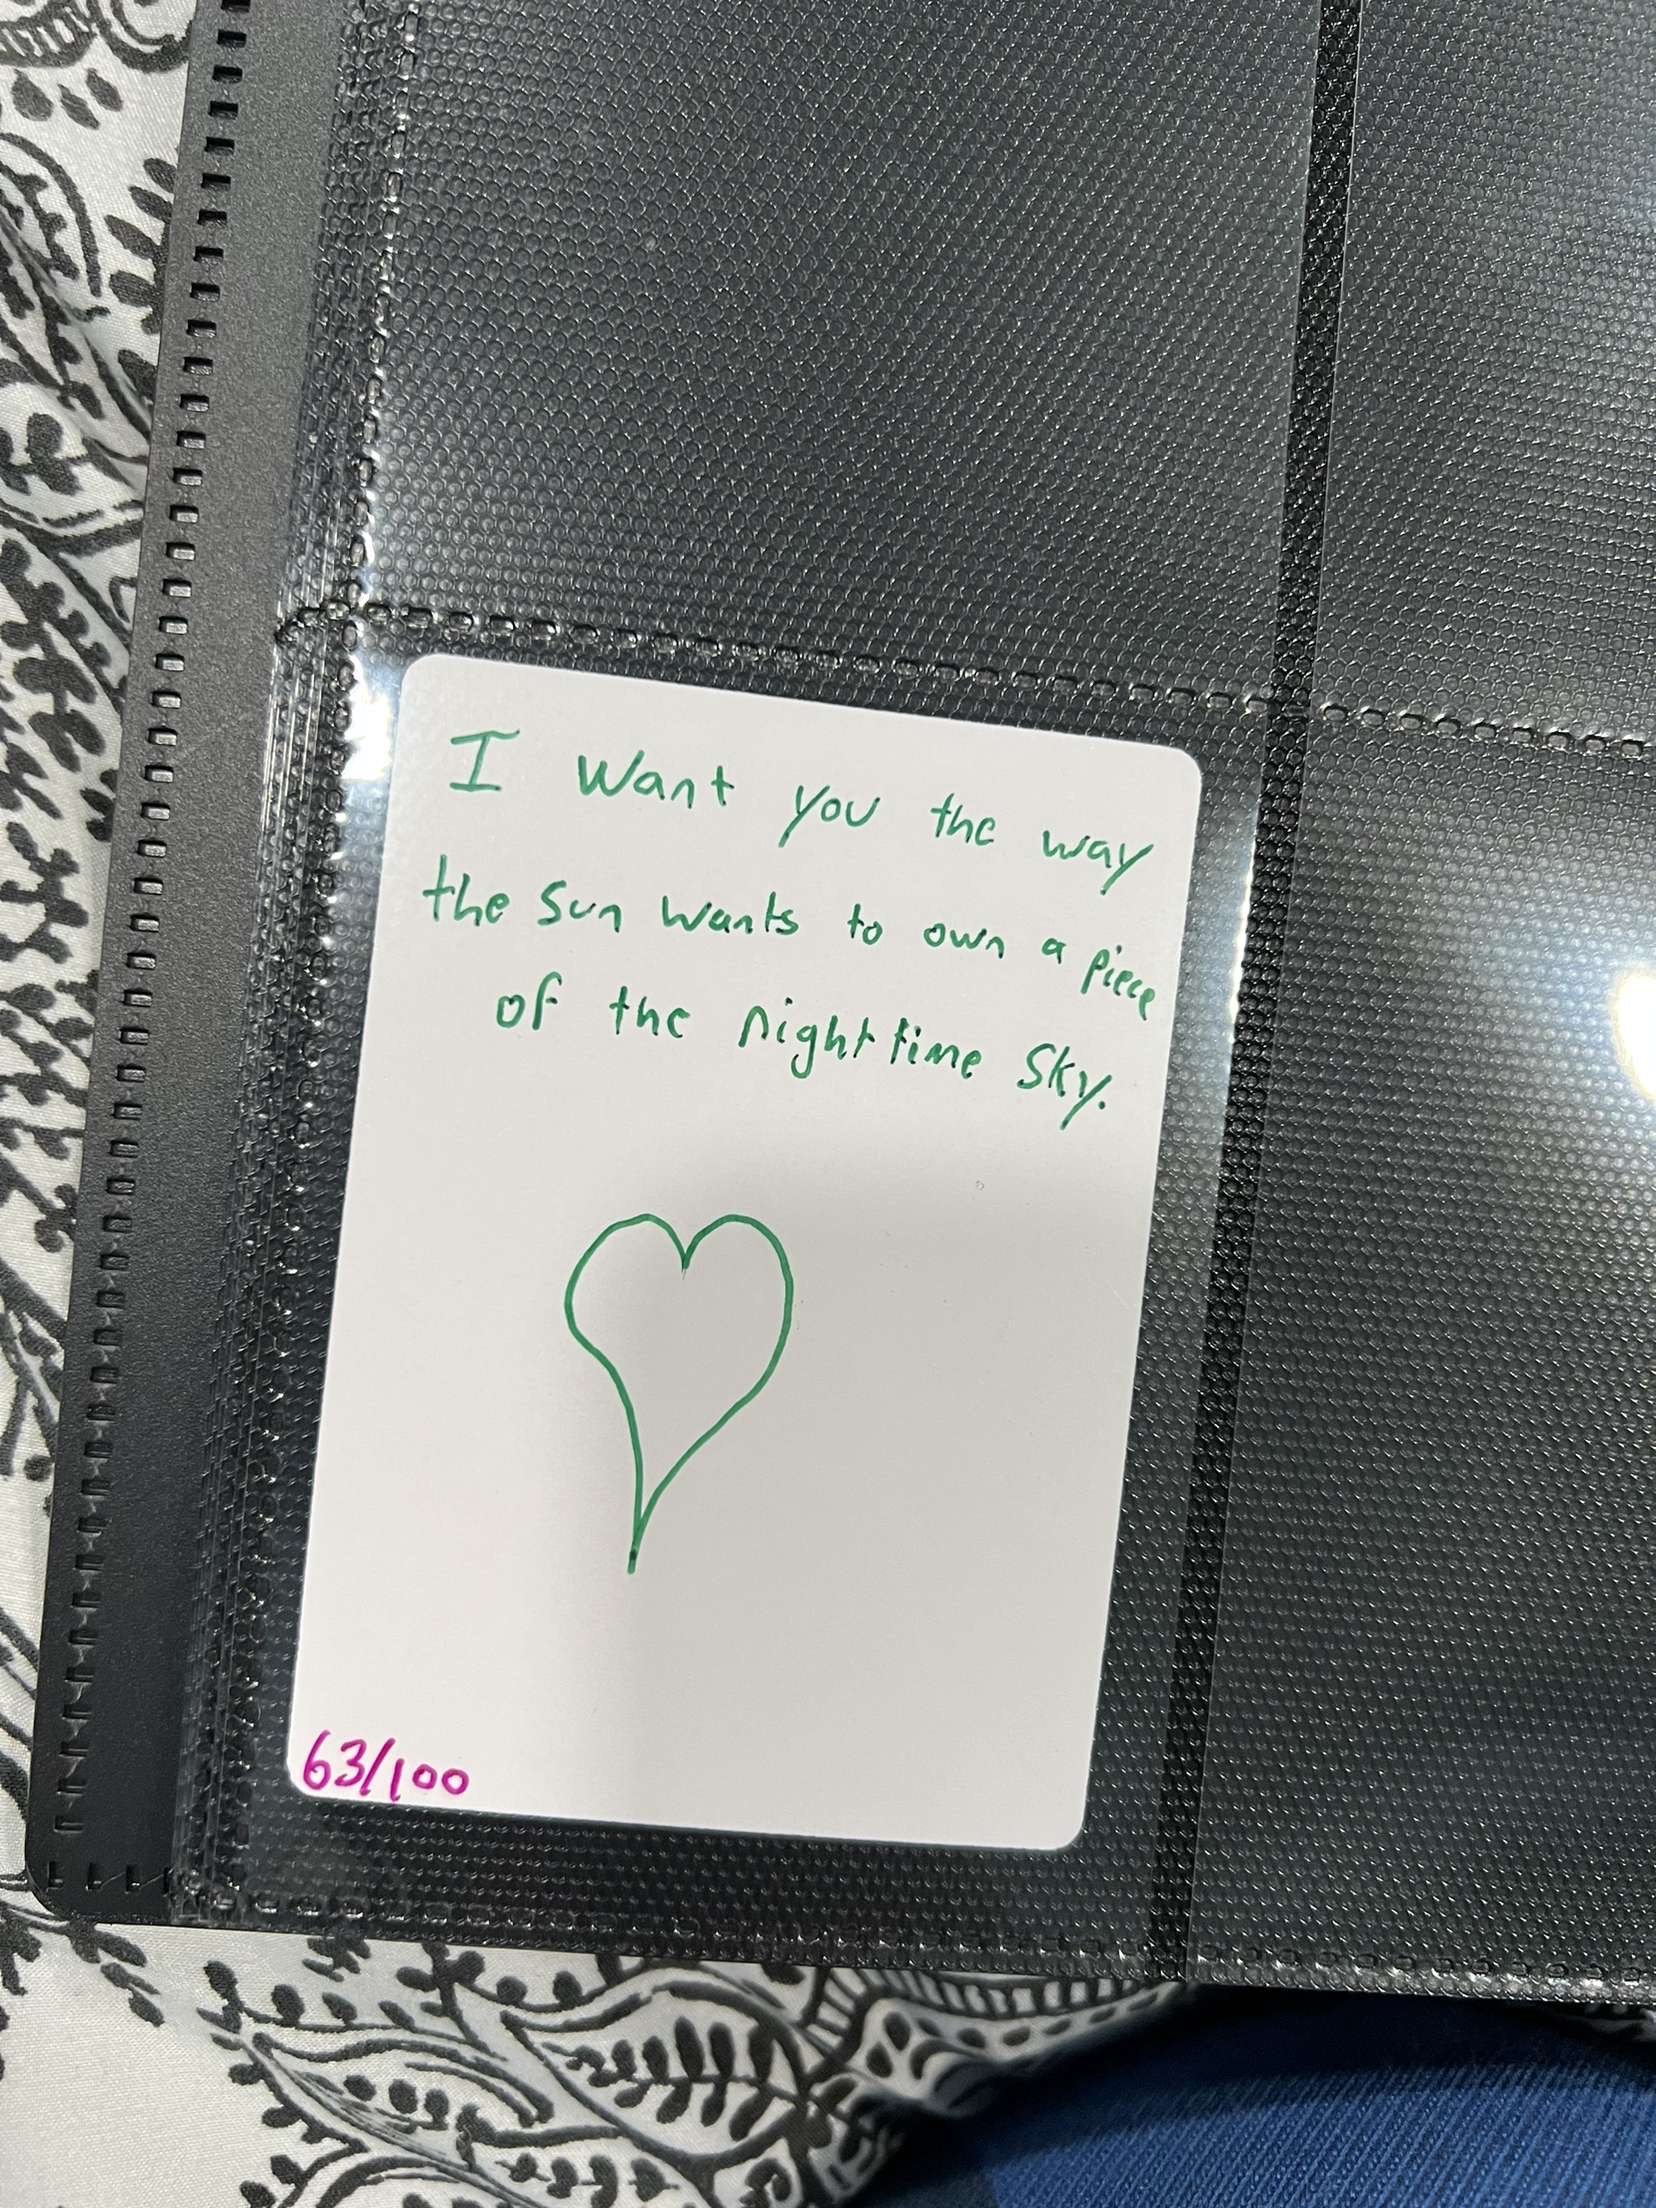 I want you the way
the sun wants to own a piece
of the nighttime sky.
63/100